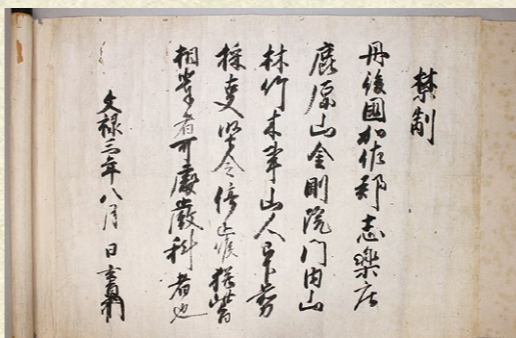 禁制
丹後國加佐郡志樂庄
鹿原山金剛院門内山
林竹木事山人早剪
採事堅令停止候猶背
相背者可處嚴科者也
文禄三年八月 日